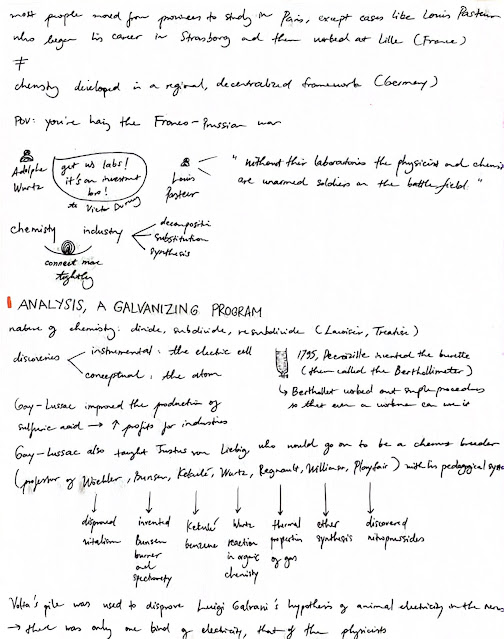 most people moved from provinces to study in Paris, except cases like Louis Pasteur
who began his career in Strasbourg and then worked at Lille (France)
≠
chemistry developed in a regional, decentralized framework (Germany)
POV: you're having the Franco-Prussian war
Adolphe Wurtz
get us labs! it's an investment bro!
to Victor Duruy
Louis Pasteur
"Without their laboratories the physicist and chemist
are unarmed soldiers on the battlefield."
chemistry industry
decomposition
substitution
synthesis
connect more tightly
ANALYSIS, A GALVANIZING PROGRAM
nature of chemistry: divide, subdivide, resubdivide (Lavoisier, Treatise)
discoveries
instrumental: the electric cell
conceptual: the atom
1795, Descroizille invented the burette
(then called the Berthollimeter)
↳ Berthollet worked out simple procedures
so that even a workman can use it
Gay-Lussac improved the production of
sulfuric acid → ↑ profits for industries
Gay-Lussac also taught Justus von Liebig, who would go on to be a chemist breeder
(professor of Woehler, Bunsen, Kekulé, Wurtz, Regnault, Williamson, Playfair) with his pedagogical
disproved vitalism
invented Bunsen burner and spectrometry
Kekulé benzene
Wurtz reaction in organic chemistry
thermal properties of gas
ether synthesis
discovered nitroprussides
Volta's pile was used to disprove Luigi Galvani's hypothesis of animal electricity in the
→ there was only one kind of electricity, that of the physicists